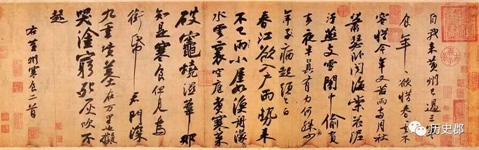 自我來黃州已過三寒
食年年欲惜春春去不
容惜今年又苦雨兩月秋
蕭瑟臥聞海棠花泥
汙燕支雪闇中偷負
去夜半真有力何殊病少
年子病起頭已白
春江欲入戶雨勢來
不已雨小屋如漁舟濛濛
水雲裏空庖煮寒菜
破竈燒濕葦那
知是寒食但見烏
銜帋君門深
九重墳墓在万里也擬
哭塗窮死灰吹不
起
右黃州寒食二首
历史郡